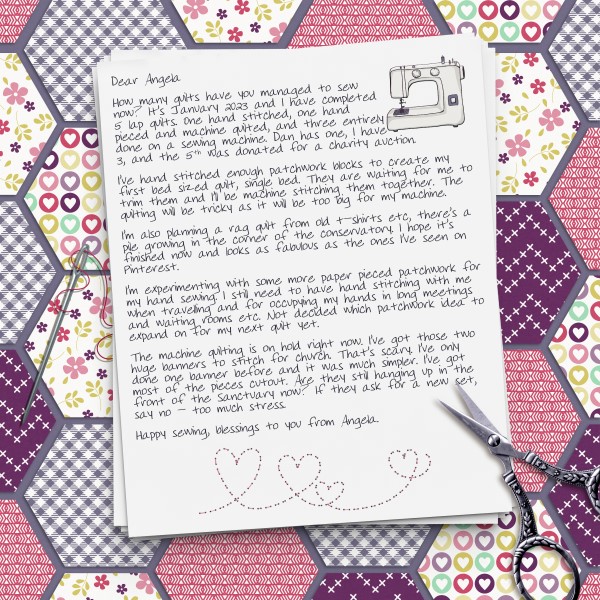 Dear Angela
How many quilts have you managed to sew
now? It's January 2023 and I have completed
5 lap quilts. One hand stitched, one hand
pieced and machine quilted, and three entirely
done on a sewing machine. Dan has one, I have
3, and the 5th was donated for a charity auction.
I've hand stitched enough patchwork blocks to create my
first bed sized quilt, single bed. They are waiting for me to
trim them and I'll be machine stitching them together. The
quilting will be tricky as it will be too big for my machine.
I'm also planning a rag quilt from old t-shirts etc, there's a
pile growing in the corner of the conservatory. I hope it's
finished now and looks as fabulous as the ones I've seen on
Pinterest.
I'm experimenting with some more paper pieced patchwork for
my hand sewing. I still need to have hand stitching with me
when traveling and for occupying my hands in long meetings
and waiting rooms etc. Not decided which patchwork idea to
expand on for my next quilt yet.
The machine quilting is on hold right now. I've got those two
huge banners to stitch for church. That's scary. I've only
done one banner before and it was much simpler. I've got
most of the pieces cutout. Are they still hanging up in the
front of the Sanctuary now? If they ask for a new set,
say no - too much stress.
Happy sewing, blessings to you from Angela.